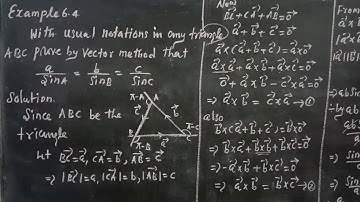 Example 6.4
With usual notations in any triangle
ABC prove by vector method that
a/sinA = b/sinB = c/sinC
Solution.
Since ABC be the
triangle
Let B⃗C = a⃗, C⃗A = b⃗, A⃗B = c⃗
⇒ |B⃗C| = a, |C⃗A| = b, |A⃗B| = c
π-A A
c⃗ b⃗
B π-B a⃗ C π-C
Now
B⃗C + C⃗A + A⃗B = 0⃗
a⃗ + b⃗ + c⃗ = 0⃗
a⃗×(a⃗+b⃗+c⃗) = a⃗×0⃗
a⃗×a⃗ + a⃗×b⃗ + a⃗×c⃗ = 0⃗
0⃗ + a⃗×b⃗ - c⃗×a⃗ = 0⃗
⇒ a⃗×b⃗ = c⃗×a⃗ → ①
also
b⃗×(a⃗+b⃗+c⃗) = b⃗×0⃗
⇒ b⃗×a⃗ + b⃗×b⃗ + b⃗×c⃗ = 0⃗
⇒ -a⃗×b⃗ + b⃗×c⃗ = 0⃗
⇒ a⃗×b⃗ = b⃗×c⃗ → ②
From